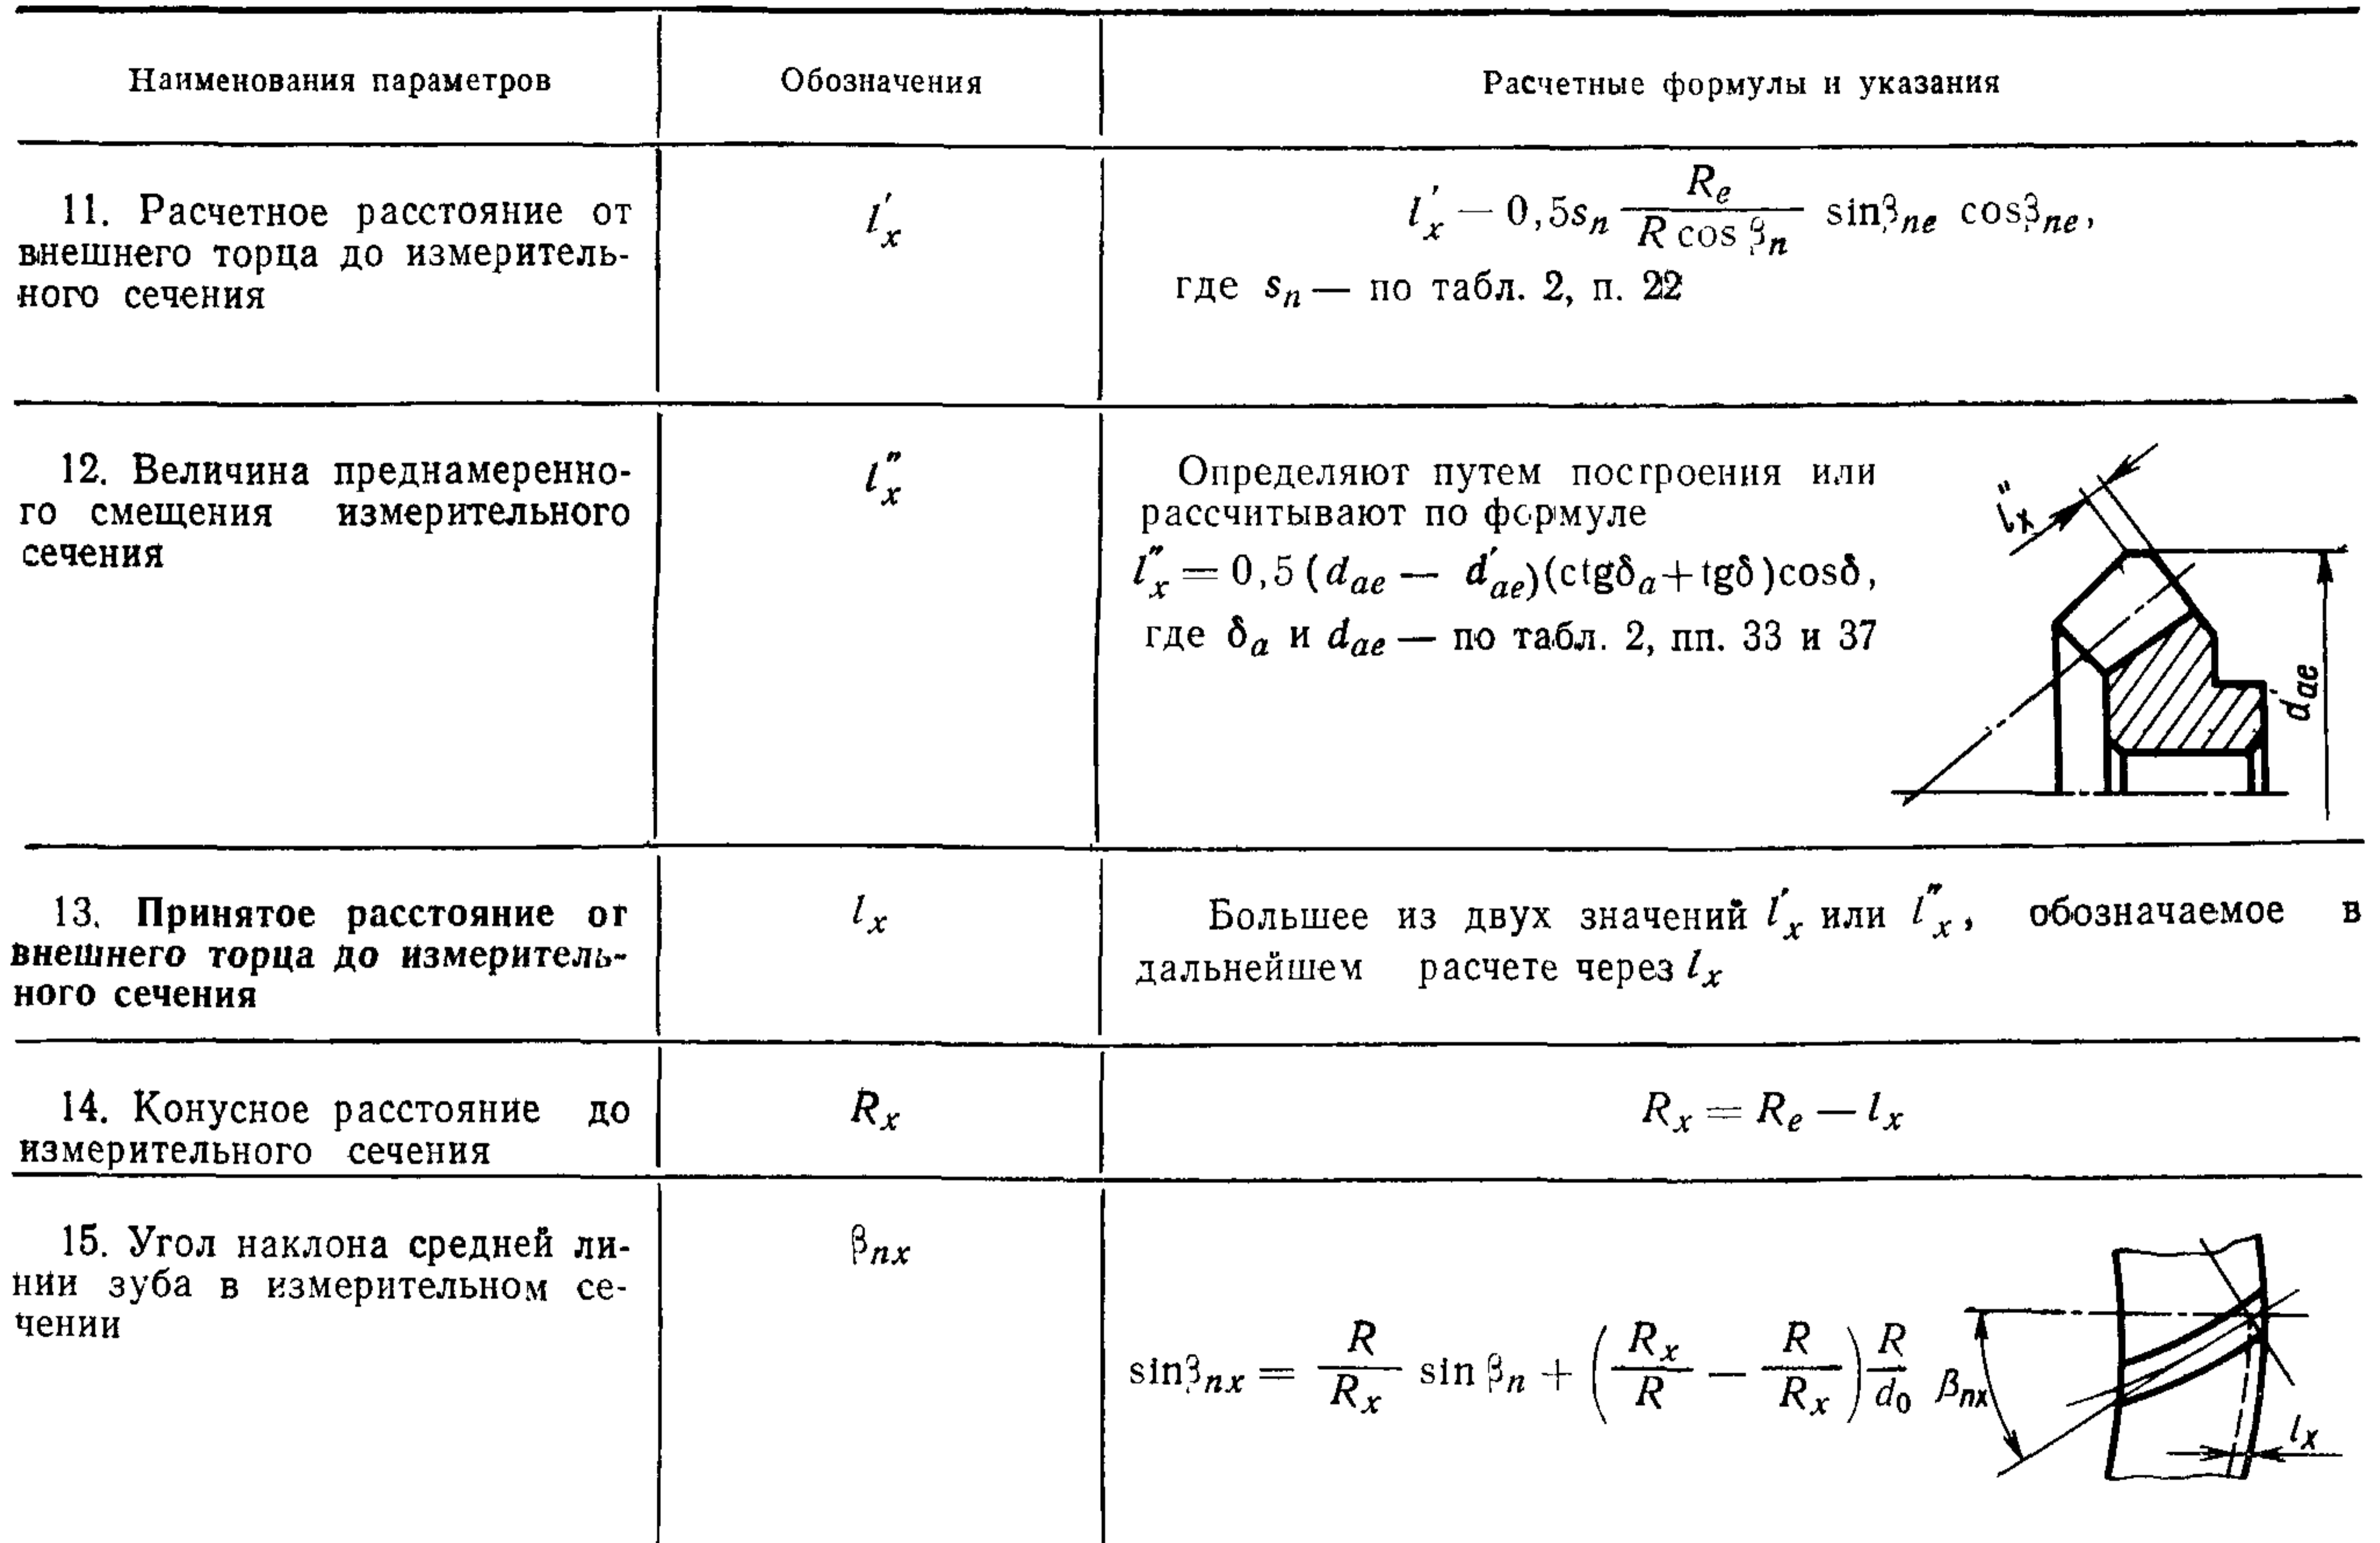 Наименования параметров
Обозначения
Расчетные формулы и указания
11. Расчетное расстояние от
внешнего торца до измеритель-
ного сечения
l′ₓ
l′ₓ — 0,5sₙ Rₑ / (R cos βₙ) sinβₙₑ cosβₙₑ,
где sₙ — по табл. 2, п. 22
12. Величина преднамеренно-
го смещения измерительного
сечения
l″ₓ
Определяют путем построения или
рассчитывают по формуле
l″ₓ = 0,5 (dₐₑ — d′ₐₑ)(ctgδₐ + tgδ)cosδ,
где δₐ и dₐₑ — по табл. 2, пп. 33 и 37
l″ₓ
d′ₐₑ
13. Принятое расстояние от
внешнего торца до измеритель-
ного сечения
lₓ
Большее из двух значений l′ₓ или l″ₓ, обозначаемое в
дальнейшем расчете через lₓ
14. Конусное расстояние до
измерительного сечения
Rₓ
Rₓ = Rₑ — lₓ
15. Угол наклона средней ли-
нии зуба в измерительном се-
чении
βₙₓ
sinβₙₓ = R/Rₓ sin βₙ + (Rₓ/R — R/Rₓ) R/d₀
βₙₓ
lₓ